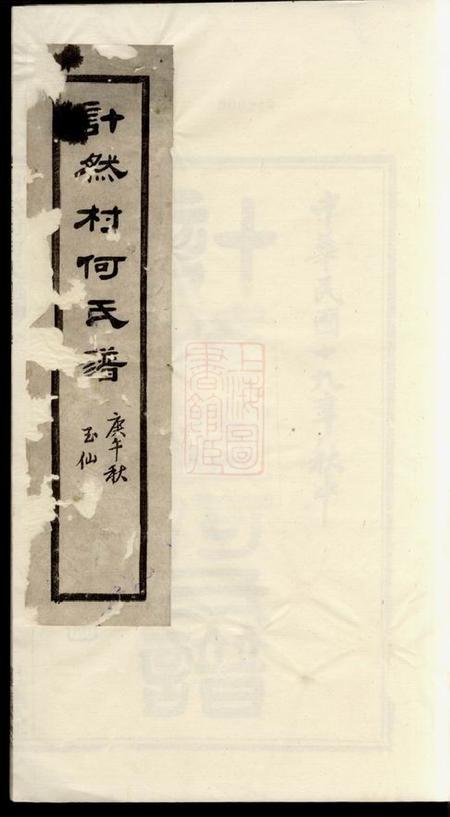 計然村何氏譜
庚午秋
玉仙
上海圖
書館藏
中華民國十九年秋午
計
何氏譜